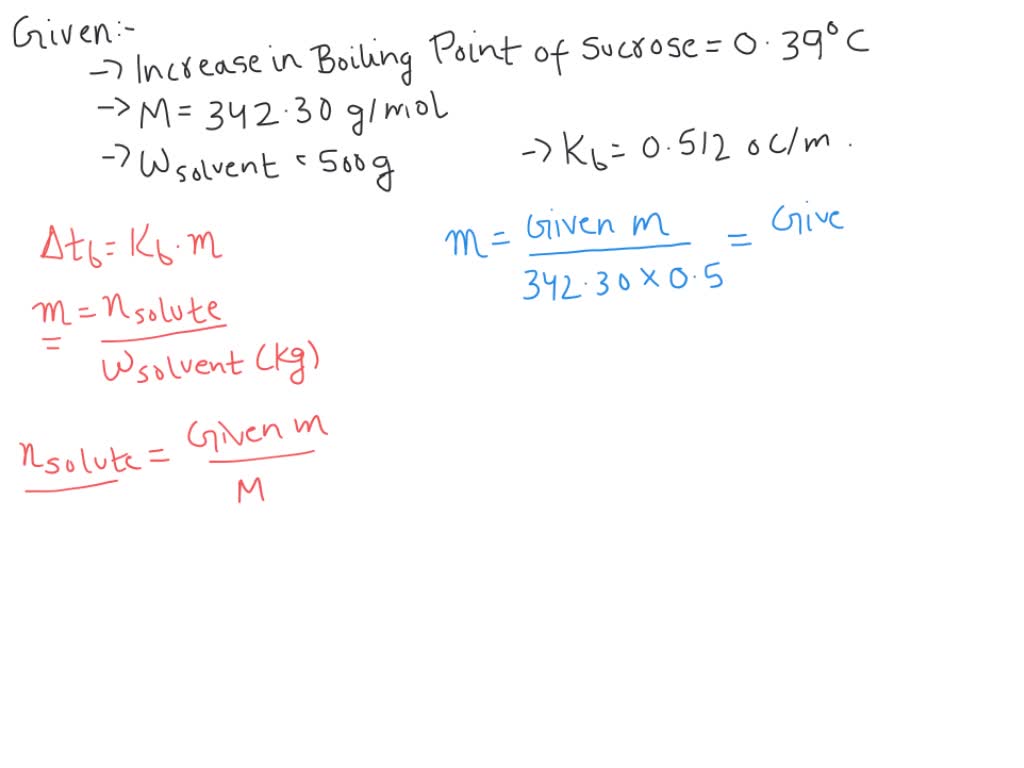 Given:-
→ Increase in Boiling Point of Sucrose = 0.39°C
→ M = 342.30 g/mol
→ Wsolvent = 500g
→ Kb = 0.512 oC/m.
Δtb = Kb.m
m = nsolute
=
Wsolvent (kg)
nsolute = Given m
M
m = Given m = Give
342.30 × 0.5